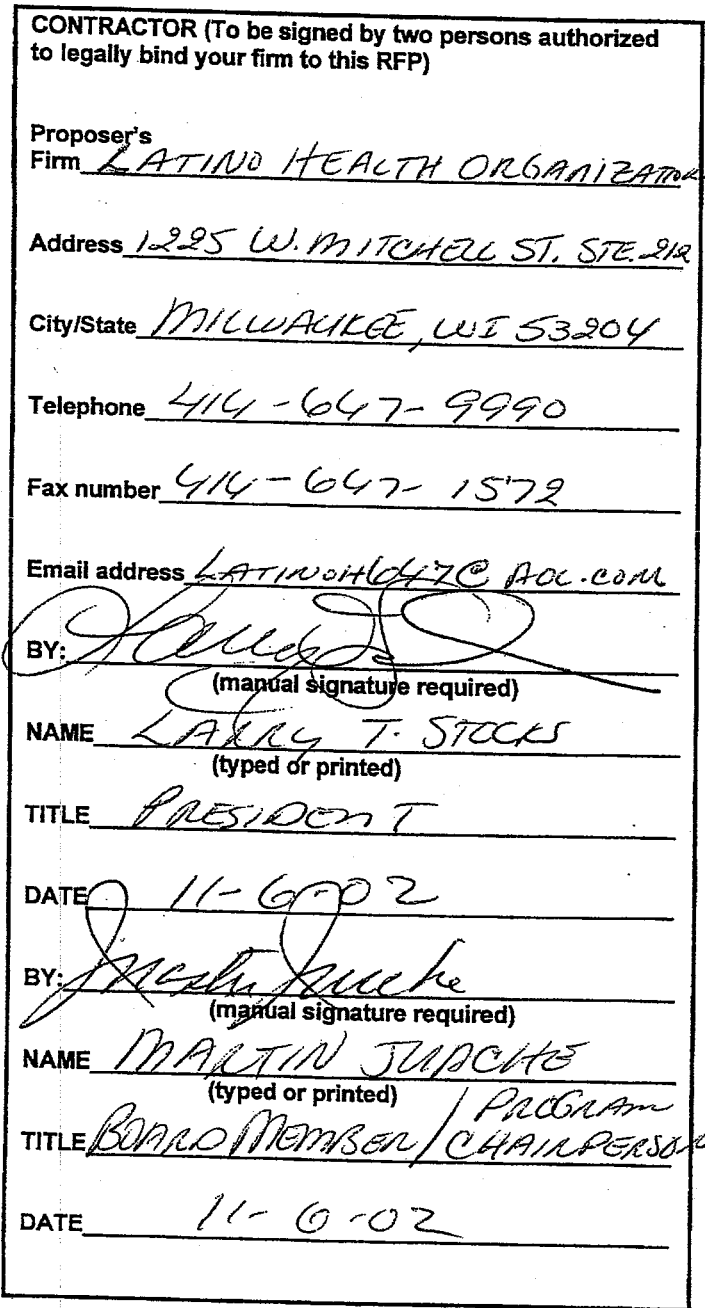 CONTRACTOR (To be signed by two persons authorized
to legally bind your firm to this RFP)
Proposer's
Firm LATINO HEALTH ORGANIZATION
Address 1225 W. MITCHELL ST. STE. 212
City/State MILWAUKEE, WI 53204
Telephone 414-647-9990
Fax number 414-647-1572
Email address LATINOH647@AOL.COM
BY:
(manual signature required)
NAME LARRY T. STOCKS
(typed or printed)
TITLE PRESIDENT
DATE 11-6-02
BY:
(manual signature required)
NAME MARTIN
(typed or printed)
TITLE BOARD MEMBER / PROGRAM
CHAIRPERSON
DATE 11-6-02